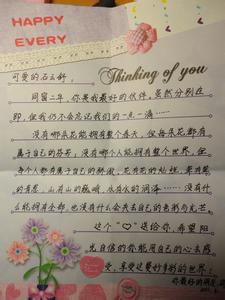 HAPPY
EVERY
Thinking of you
可爱的石云舒:
同窗二年,你是我最好的伙伴,虽然分别在
即,但我仍不会忘记我们的一点一滴……
没有哪朵花能拥有整个春天,但每朵花都有
属于自己的芬芳,没有哪个人能拥有整个世界,但
每个人都有属于自己的骄傲,花有花的灿烂,草有草
的青葱,山有山的巍峨,水有水的润泽……没有什
么能拥有全部,也没有什么会失去自己的色彩与光芒
这个“♡”送给你,希望阳
光自信的你能用自己的心去感
受,享受这美好多彩的世界!
你最好的朋友